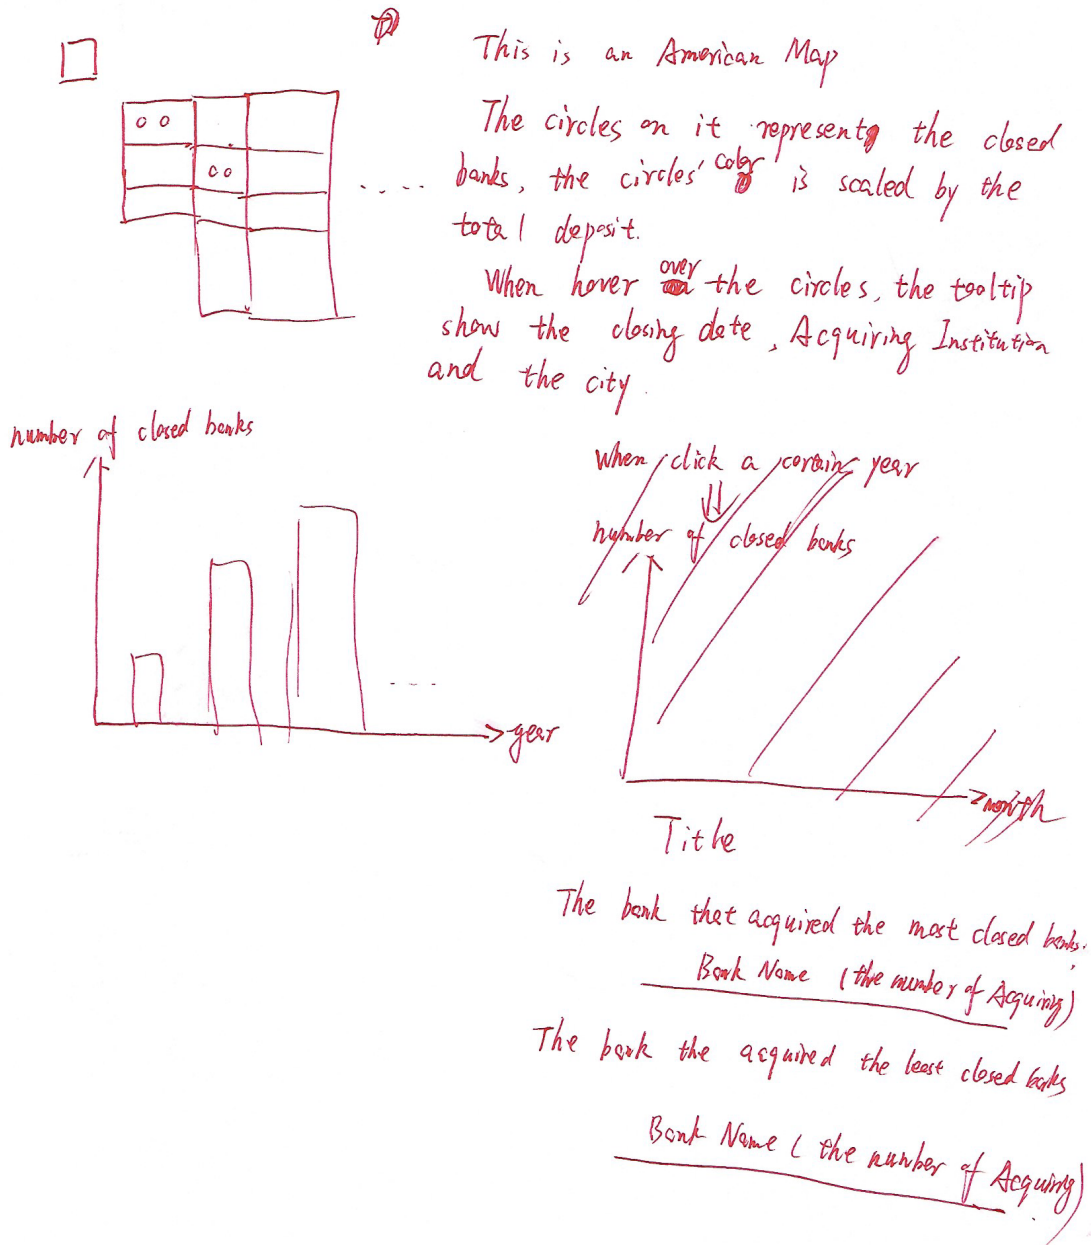 This is an American Map
The circles on it represent the closed
banks, the circles' color is scaled by the
total deposit.
When hover over the circles, the tooltip
show the closing date, Acquiring Institution
and the city.
number of closed banks
year
When click a certain year
number of closed banks
month
Title
The bank that acquired the most closed banks.
Bank Name (the number of Acquiring)
The bank the acquired the least closed banks
Bank Name (the number of Acquiring)